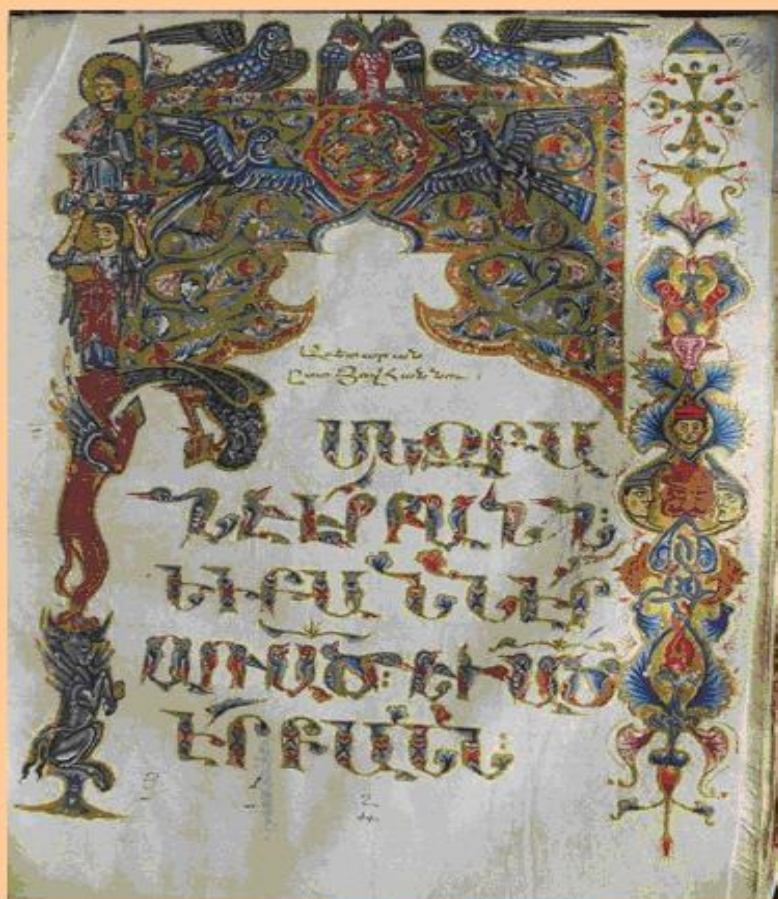 Աւետարան
ըստ Յովհաննու :
Ի ՍԿԶԲԱ
ՆԷ ԷՐ ԲԱՆՆ:
ԵՒ ԲԱՆՆ ԷՐ
ԱՌ ԱԾ: ԵՒ ԱԾ
ԷՐ ԲԱՆՆ: